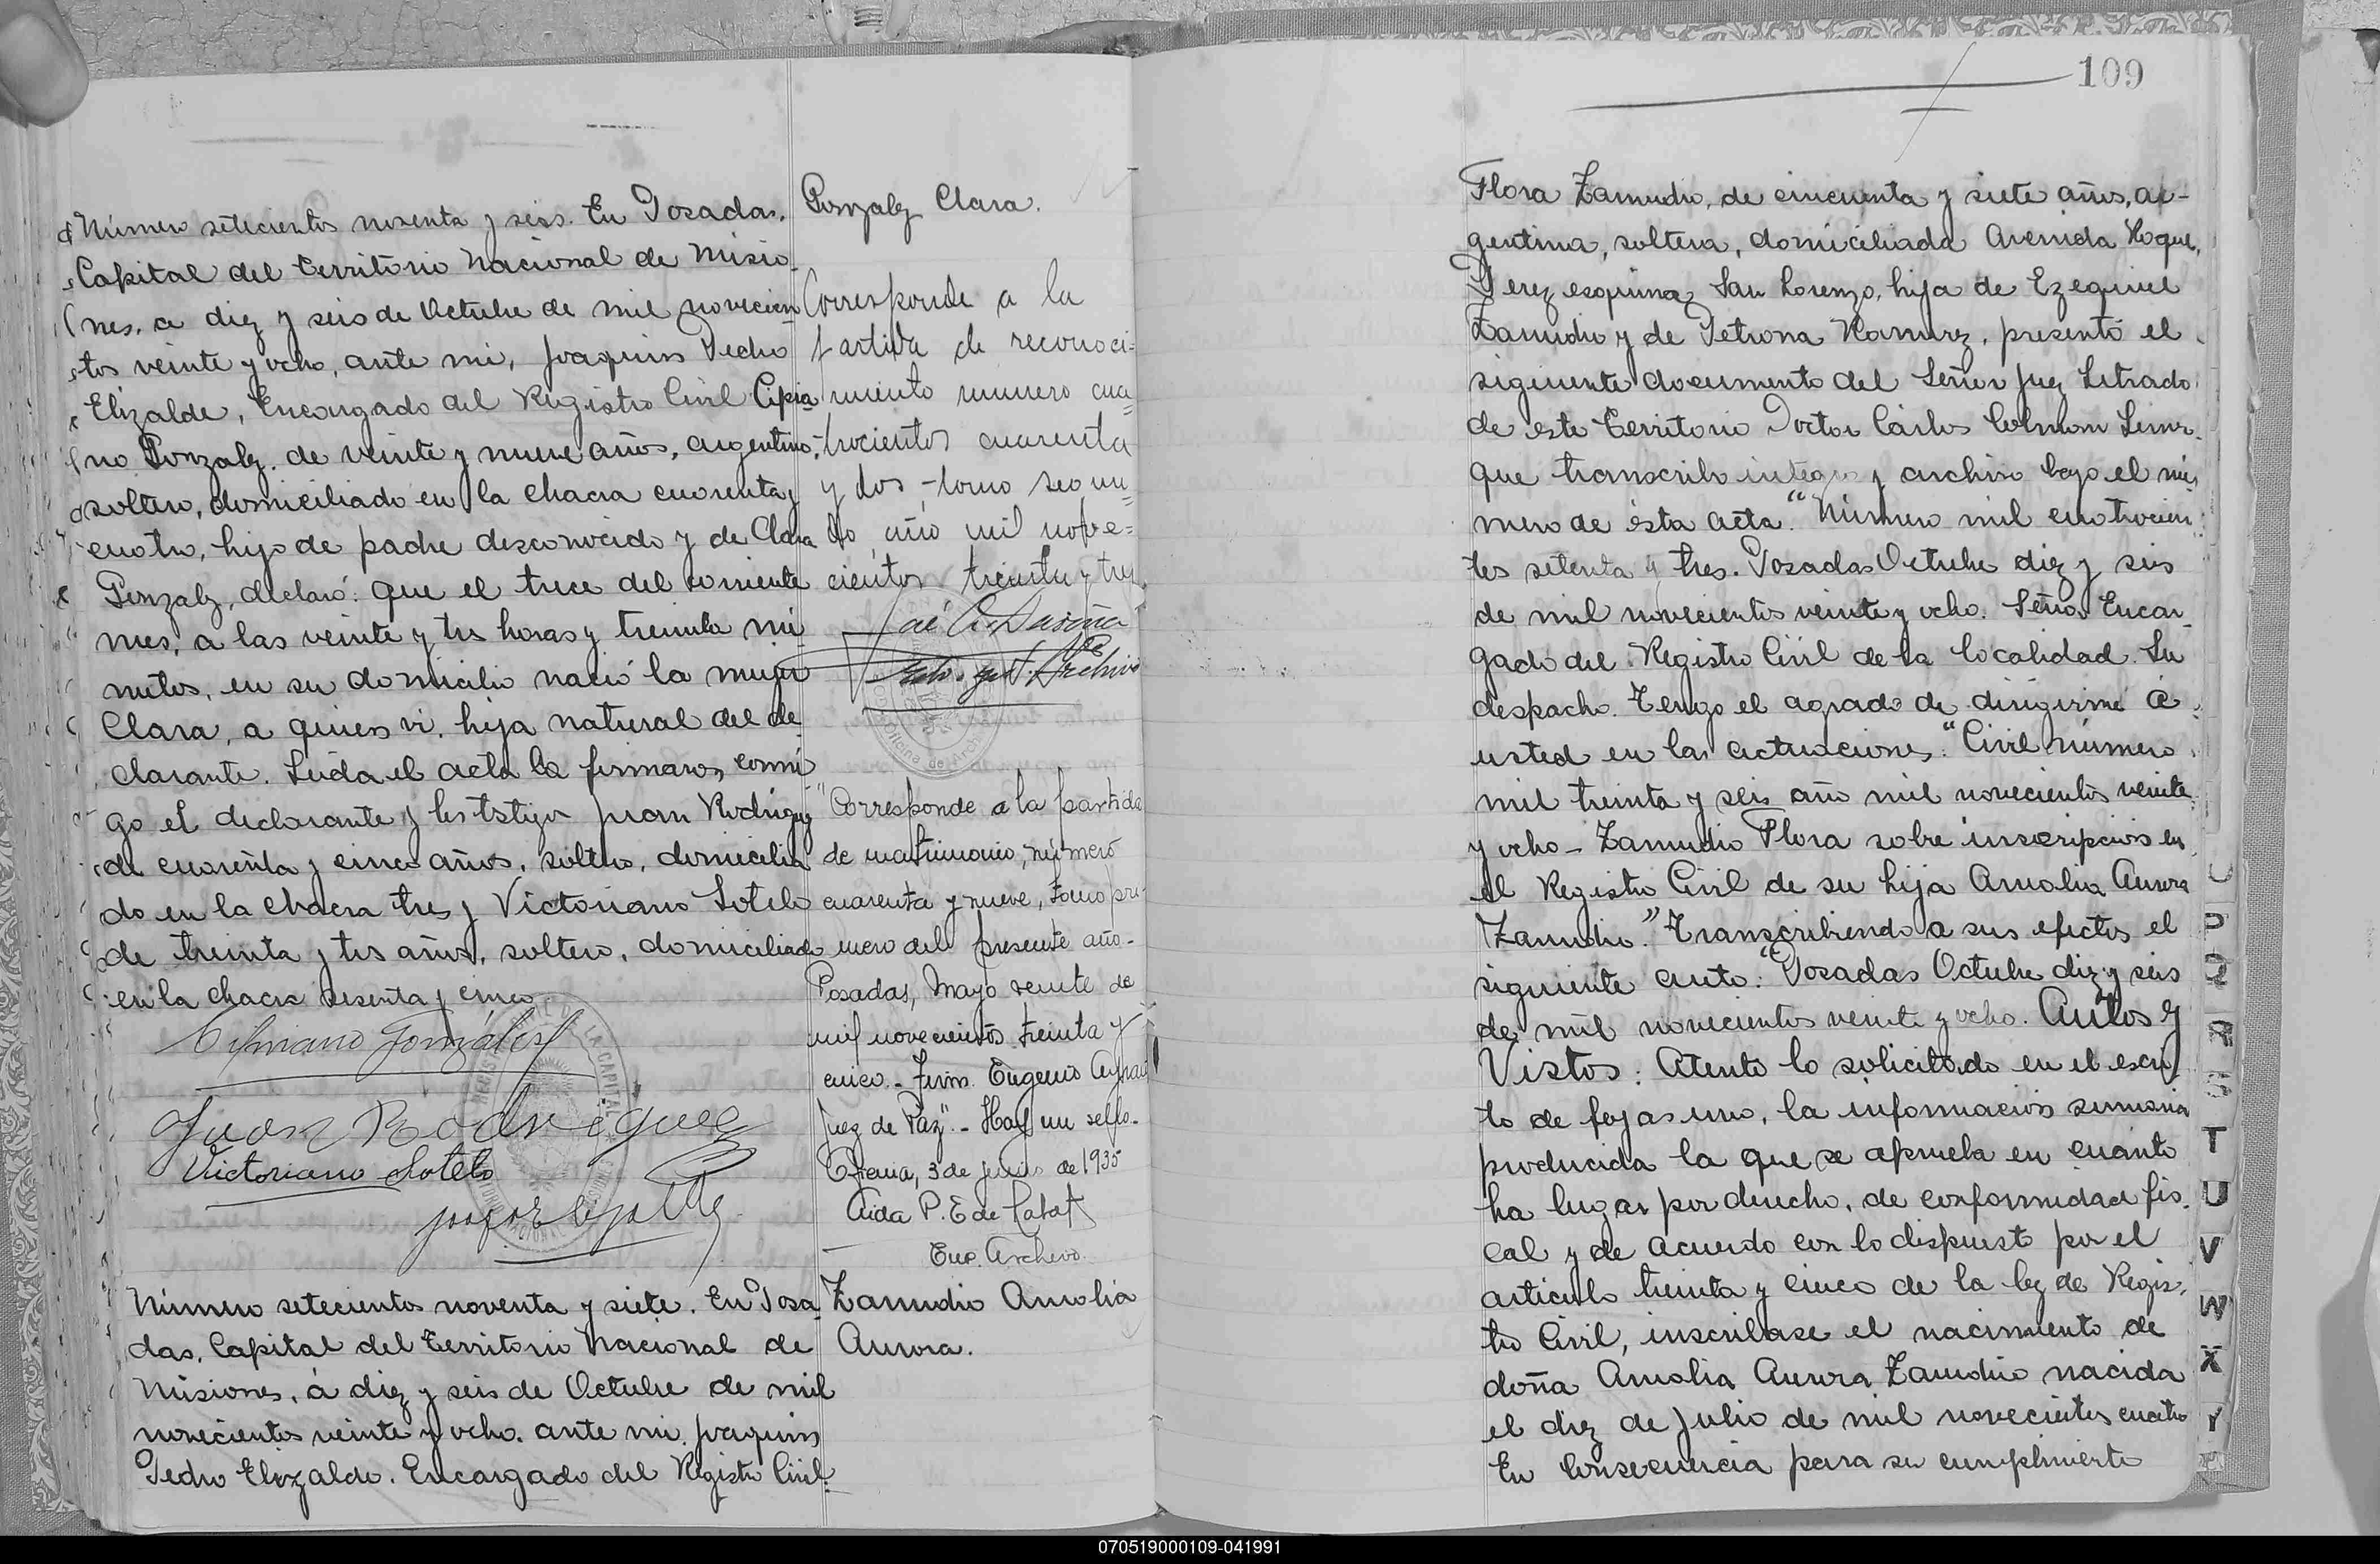 Número setecientos noventa y seis. En Posadas,
Capital del Territorio Nacional de Misio-
nes, a diez y seis de Octubre de mil novecien-
tos veinte y ocho, ante mi, Joaquin Pedro
Elizalde, Encargado del Registro Civil Cipria-
no Gonzalez, de veinte y nueve años, argentino,
soltero, domiciliado en la chacra cuarenta y
cuatro, hijo de padre desconocido y de Clara
Gonzalez, declaró: que el trece del corriente
mes, a las veinte y tres horas y treinta mi-
nutos, en su domicilio nació la mujer
Clara, a quien vi, hija natural del de-
clarante. Leida el acta la firmaron conmi-
go el declarante y los testigos Juan Rodriguez
de cuarenta y cinco años, soltero, domicilia-
do en la chacra tres y Victoriano Sotelo
de treinta y tres años, soltero, domiciliado
en la chacra sesenta y cinco
Cipriano González
Juan Rodriguez
Victoriano Sotelo
Gonzalez Clara.
Corresponde a la
partida de reconoci=
miento numero cua=
trocientos cuarenta
y dos - tomo segun=
do año mil nove=
cientos treinta y tres
Archivo
"Corresponde a la partida
de matrimonio, número
cuarenta y nueve, tomo pri-
mero del presente año.-
Posadas, Mayo veinte de
mil novecientos treinta y
cinco.- Firm. Eugenio
Juez de Paz".- Hay un sello.-
Oficina, 3 de junio de 1935
Aida P. E de
Enc. Archivo.
Número setecientos noventa y siete. En Posa-
das, Capital del Territorio Nacional de
Misiones, á diez y seis de Octubre de mil
novecientos veinte y ocho, ante mi, Joaquin
Pedro Elizalde, Encargado del Registro Civil
Zamudio Amalia
Aurora.
109
Flora Zamudio, de cincuenta y siete años, ar-
gentina, soltera, domiciliada Avenida Roque
Perez esquina San Lorenzo, hija de Ezequiel
Zamudio y de Petrona Ramirez, presentó el
siguiente documento del Señor Juez Letrado
de este Territorio Doctor Cárlos
que transcribo integro y archivo bajo el nú-
mero de ésta acta. "Número mil cuatrocien-
tos setenta y tres. Posadas Octubre diez y seis
de mil novecientos veinte y ocho. Señor Encar-
gado del Registro Civil de la localidad. Su
despacho. Tengo el agrado de dirigirme á
usted en las actuaciones: "Civil número
mil treinta y seis año mil novecientos veinte
y ocho - Zamudio Flora sobre inscripción en
el Registro Civil de su hija Amalia Aurora
Zamudio." Transcribiendo a sus efectos el
siguiente auto: "Posadas Octubre diez y seis
de mil novecientos veinte y ocho. Autos y
Vistos: Atento lo solicitado en el escri-
to de fojas uno, la información sumaria
producida la que se aprueba en cuanto
ha lugar por derecho, de conformidad fis-
cal y de acuerdo con lo dispuesto por el
articulo treinta y cinco de la ley de Regis-
tro Civil, inscribase el nacimiento de
doña Amalia Aurora Zamudio nacida
el diez de Julio de mil novecientos cuatro
En consecuencia para su cumplimiento
P
Q
R
S
T
U
V
W
X
Y
070519000109-041991